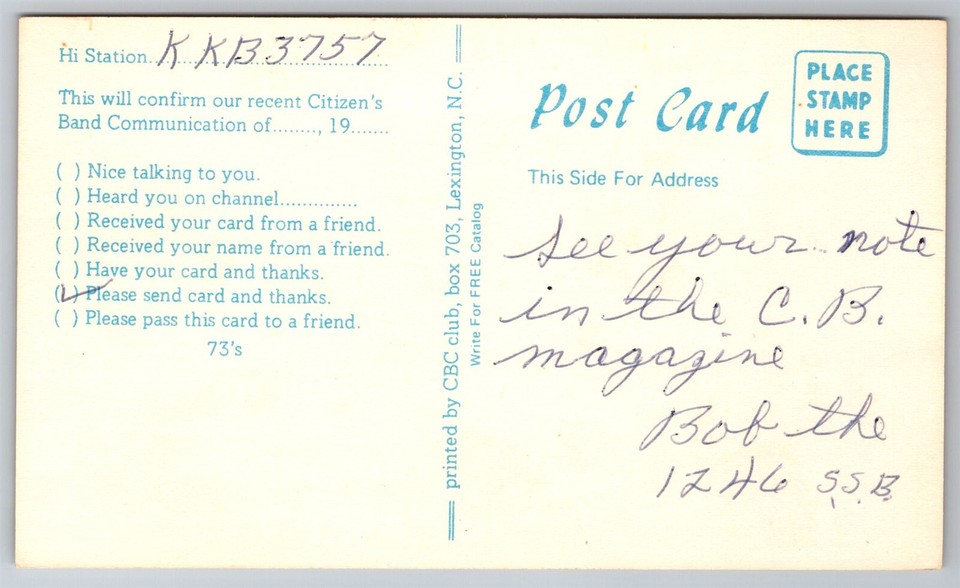 Hi Station..KKB3757
This will confirm our recent Citizen's
Band Communication of........, 19.......
( ) Nice talking to you.
( ) Heard you on channel..............
( ) Received your card from a friend.
( ) Received your name from a friend.
( ) Have your card and thanks.
(✓) Please send card and thanks.
( ) Please pass this card to a friend.
73's
printed by CBC club, box 703, Lexington, N.C.
Write For FREE Catalog
Post Card
PLACE
STAMP
HERE
This Side For Address
See your note
in the C.B.
magazine
Bob the
1246 S.S.B.